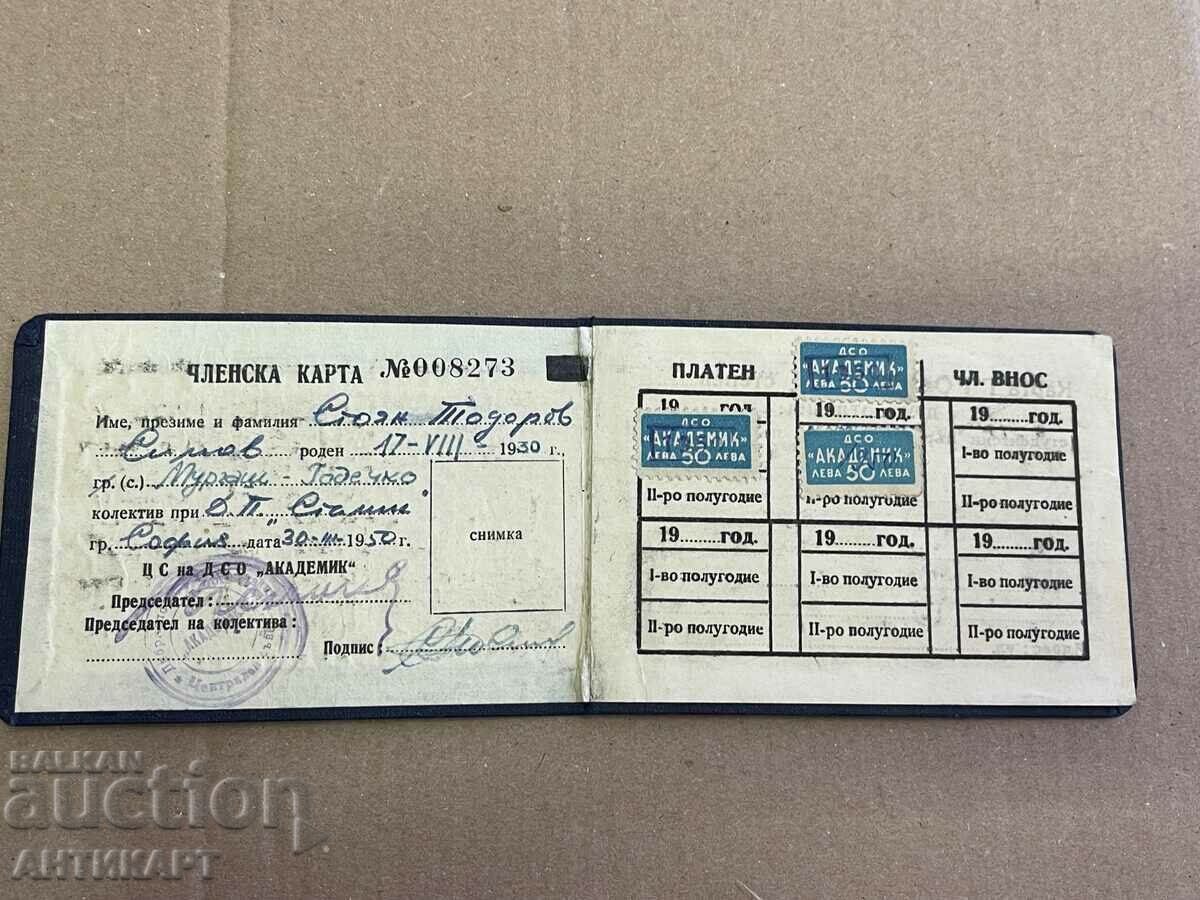 ЧЛЕНСКА КАРТА №008273
Име, презиме и фамилия Стоян Тодоров
роден 17-VIII- 1930 г.,
гр. (с.) Мургаш - Годечко
колектив при Д.П. „Сталин"
гр. София дата 30-III-1950 г.
ЦС на ДСО „АКАДЕМИК"
Председател:
Председател на колектива:
Подпис:
снимка
ПЛАТЕН ЧЛ. ВНОС
ДСО
„АКАДЕМИК"
ЛЕВА 50 ЛЕВА
19 год. 19.........год. 19.........год.
ДСО
„АКАДЕМИК"
ЛЕВА 50 ЛЕВА
ДСО
„АКАДЕМИК"
ЛЕВА 50 ЛЕВА
I-во полугодие
II-ро полугодие II-ро полугодие II-ро полугодие
19.........год. 19.........год. 19.........год.
I-во полугодие I-во полугодие I-во полугодие
II-ро полугодие II-ро полугодие II-ро полугодие
BALKAN
auction
АНТИКАРТ